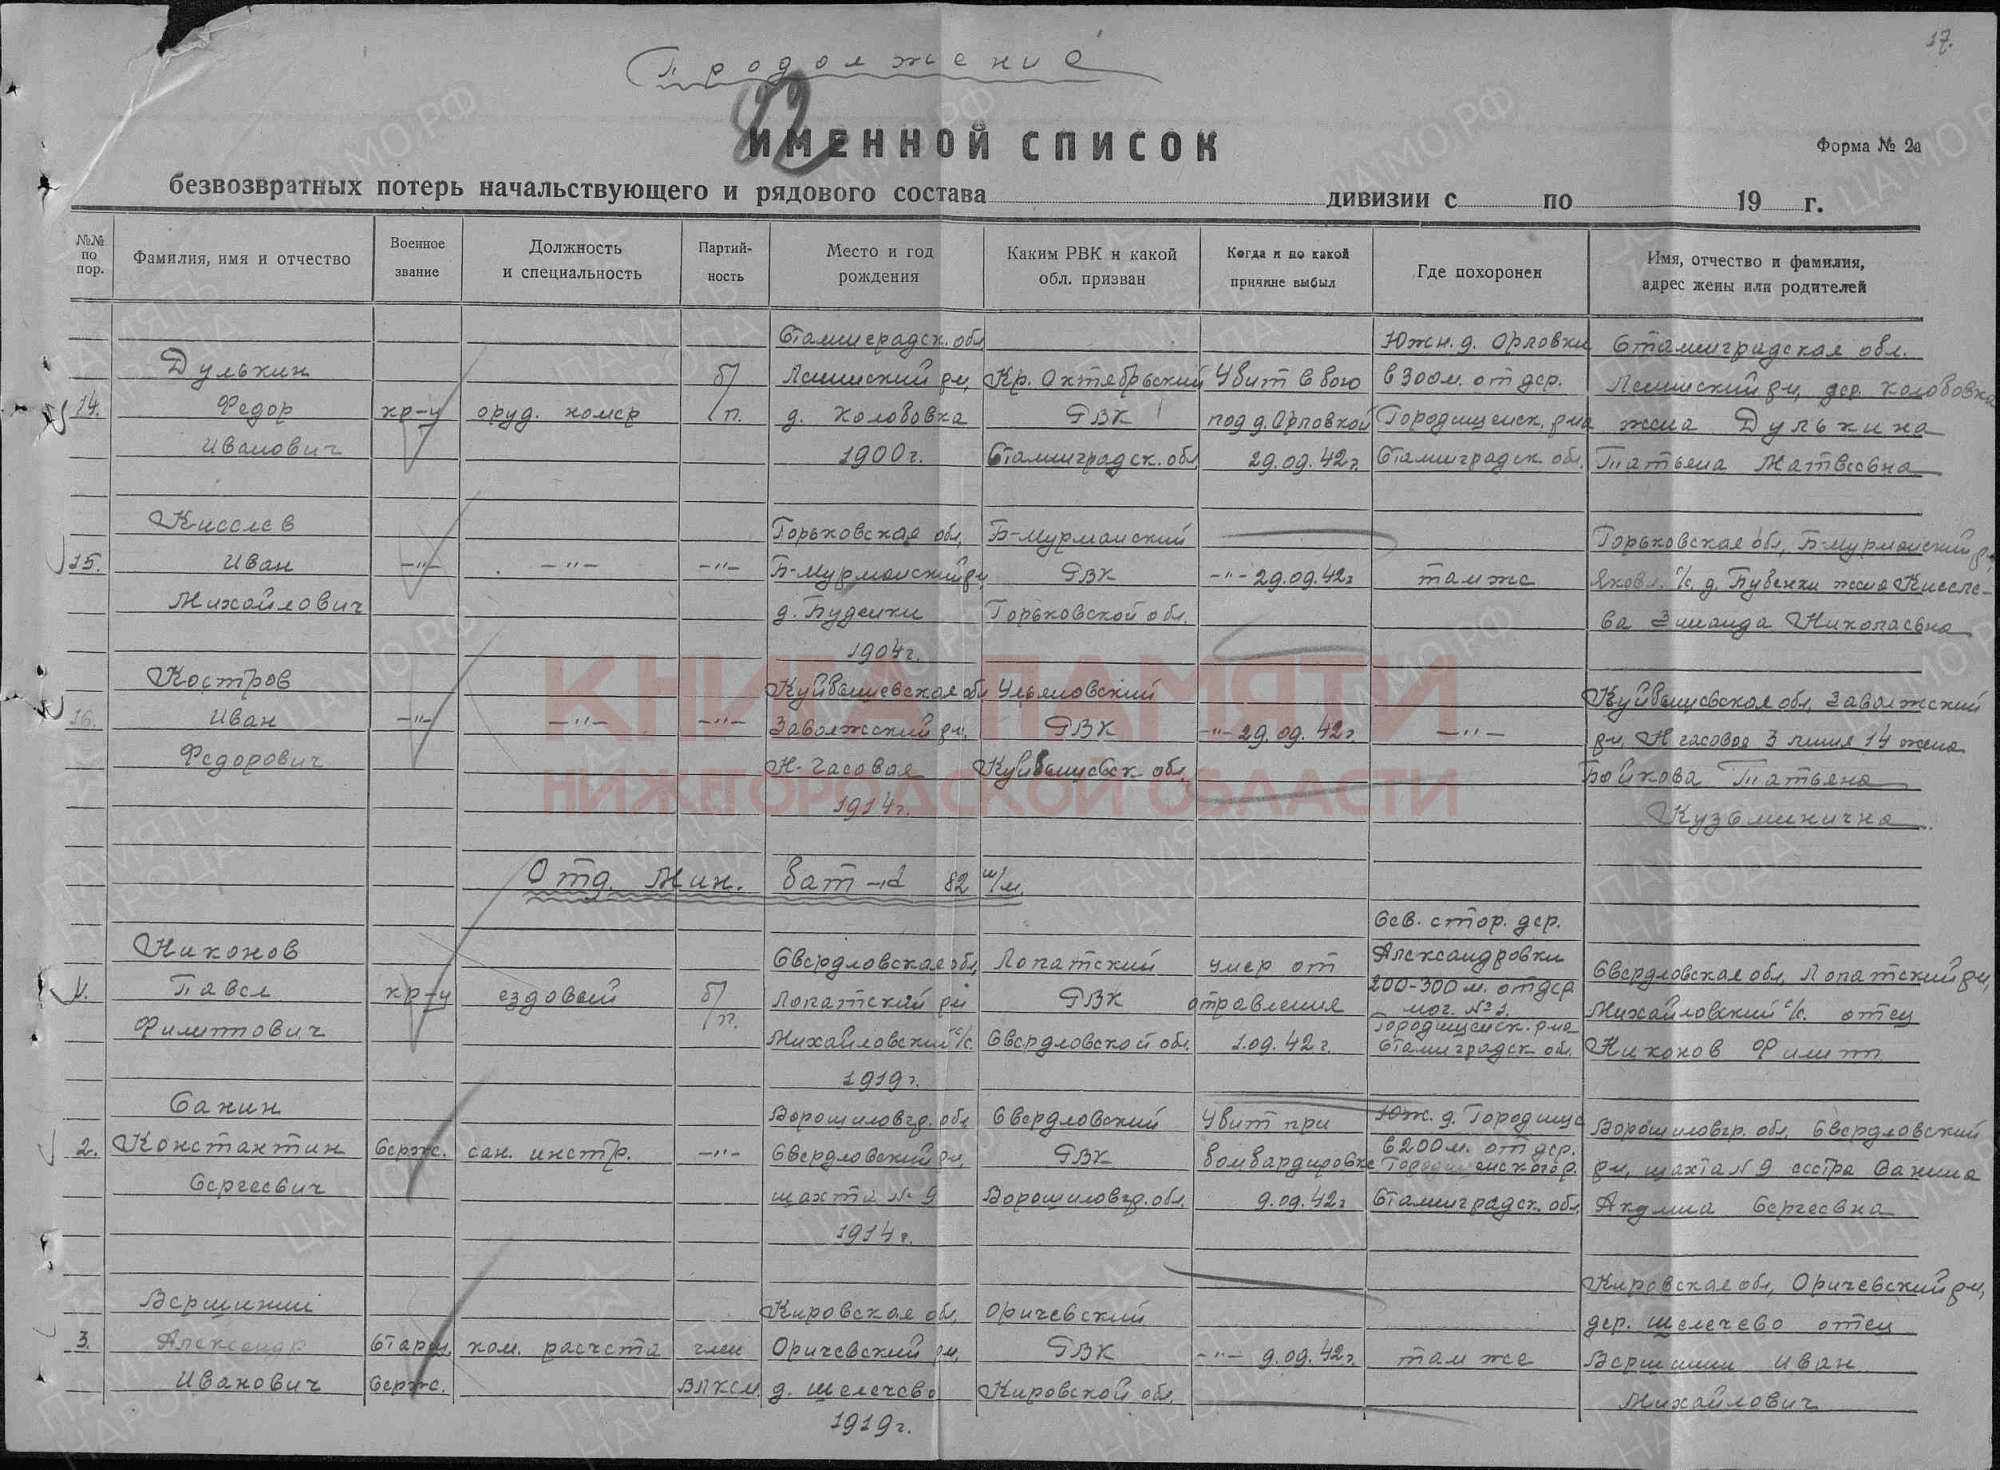 17.
Продолжение
82
ИМЕННОЙ СПИСОК
Форма № 2а
безвозвратных потерь начальствующего и рядового состава дивизии с по 19 г.
№№ по пор.
Фамилия, имя и отчество
Военное звание
Должность и специальность
Партийность
Место и год рождения
Каким РВК и какой обл. призван
Когда и по какой причине выбыл
Где похоронен
Имя, отчество и фамилия, адрес жены или родителей
Сталинградск. обл. Южн. д. Орловки Сталинградская обл.
Дулькин б/ Ленинский рн, Кр. Октябрьский Убит в бою в 300м. от дер. Ленинский рн, дер. Колобовка
14. Федор кр-ц оруд. номер п. д. Колобовка РВК под д. Орловкой Городищенск. рна жена Дулькина
Иванович 1900г. Сталинградск. обл. 29.09.42г. Сталинградск. обл. Татьяна Матвеевна
Киселев Горьковская обл, Б-Мурманский Горьковская обл, Б-Мурманский рн,
15. Иван —"— —"— —"— Б-Мурманский рн, РВК —"— 29.09.42г там же Яковл. с/с. д. Бубенки жена Киселе-
Михайлович д. Буденки Горьковской обл. ва Зинаида Николаевна
1904г.
Костров Куйбышевская обл Ульяновский Куйбышевская обл, Заволжский
16. Иван —"— —"— —"— Заволжский рн, РВК —"— 29.09.42г. —"— рн, Н Часовая 3 линия 14 жена
Федорович Н-Часовая Куйбышевск. обл. Бойкова Татьяна
1914г. Кузьминична
КНИГА ПАМЯТИ
НИЖЕГОРОДСКОЙ ОБЛАСТИ
Отд. Мин. бат-н 82 м/м.
Сев. стор. дер.
Никонов Свердловская обл, Лопатский умер от Александровки Свердловская обл, Лопатский рн,
1. Павел кр-ц ездовой б/п. Лопатский рн РВК отравления 200-300 м. от дер мог. №1. Михайловский с/с. отец
Филиппович Михайловский с/с. Свердловской обл. 1.09.42г. Городищенск. рна Сталинградск обл. Никонов Филипп
1919г.
Санин Ворошиловгд. обл Свердловский Убит при Юж. д. Городище Ворошиловгр. обл, Свердловский
2. Константин Сержс. сан. инстр. —"— Свердловский рн, РВК бомбардировке в 200 м. от дер. рн, шахта №9 сестра Санина
Сергеевич шахта №9 Ворошиловгд. обл. 9.09.42г Сталинградск. обл, Акулина Сергеевна
1914г.
Вершинин Кировская обл, Оричевский Кировская обл, Оричевский рн,
дер. Шелечево отец
3. Александр Старш. ком. расчета член Оричевский рн, РВК —"— 9.09.42г. там же Вершинин Иван
Иванович Сержс. ВЛКСМ. д. Шелечево Кировской обл. Михайлович
1919г.
ПАМЯТЬ НАРОДА
ЦА МО РФ